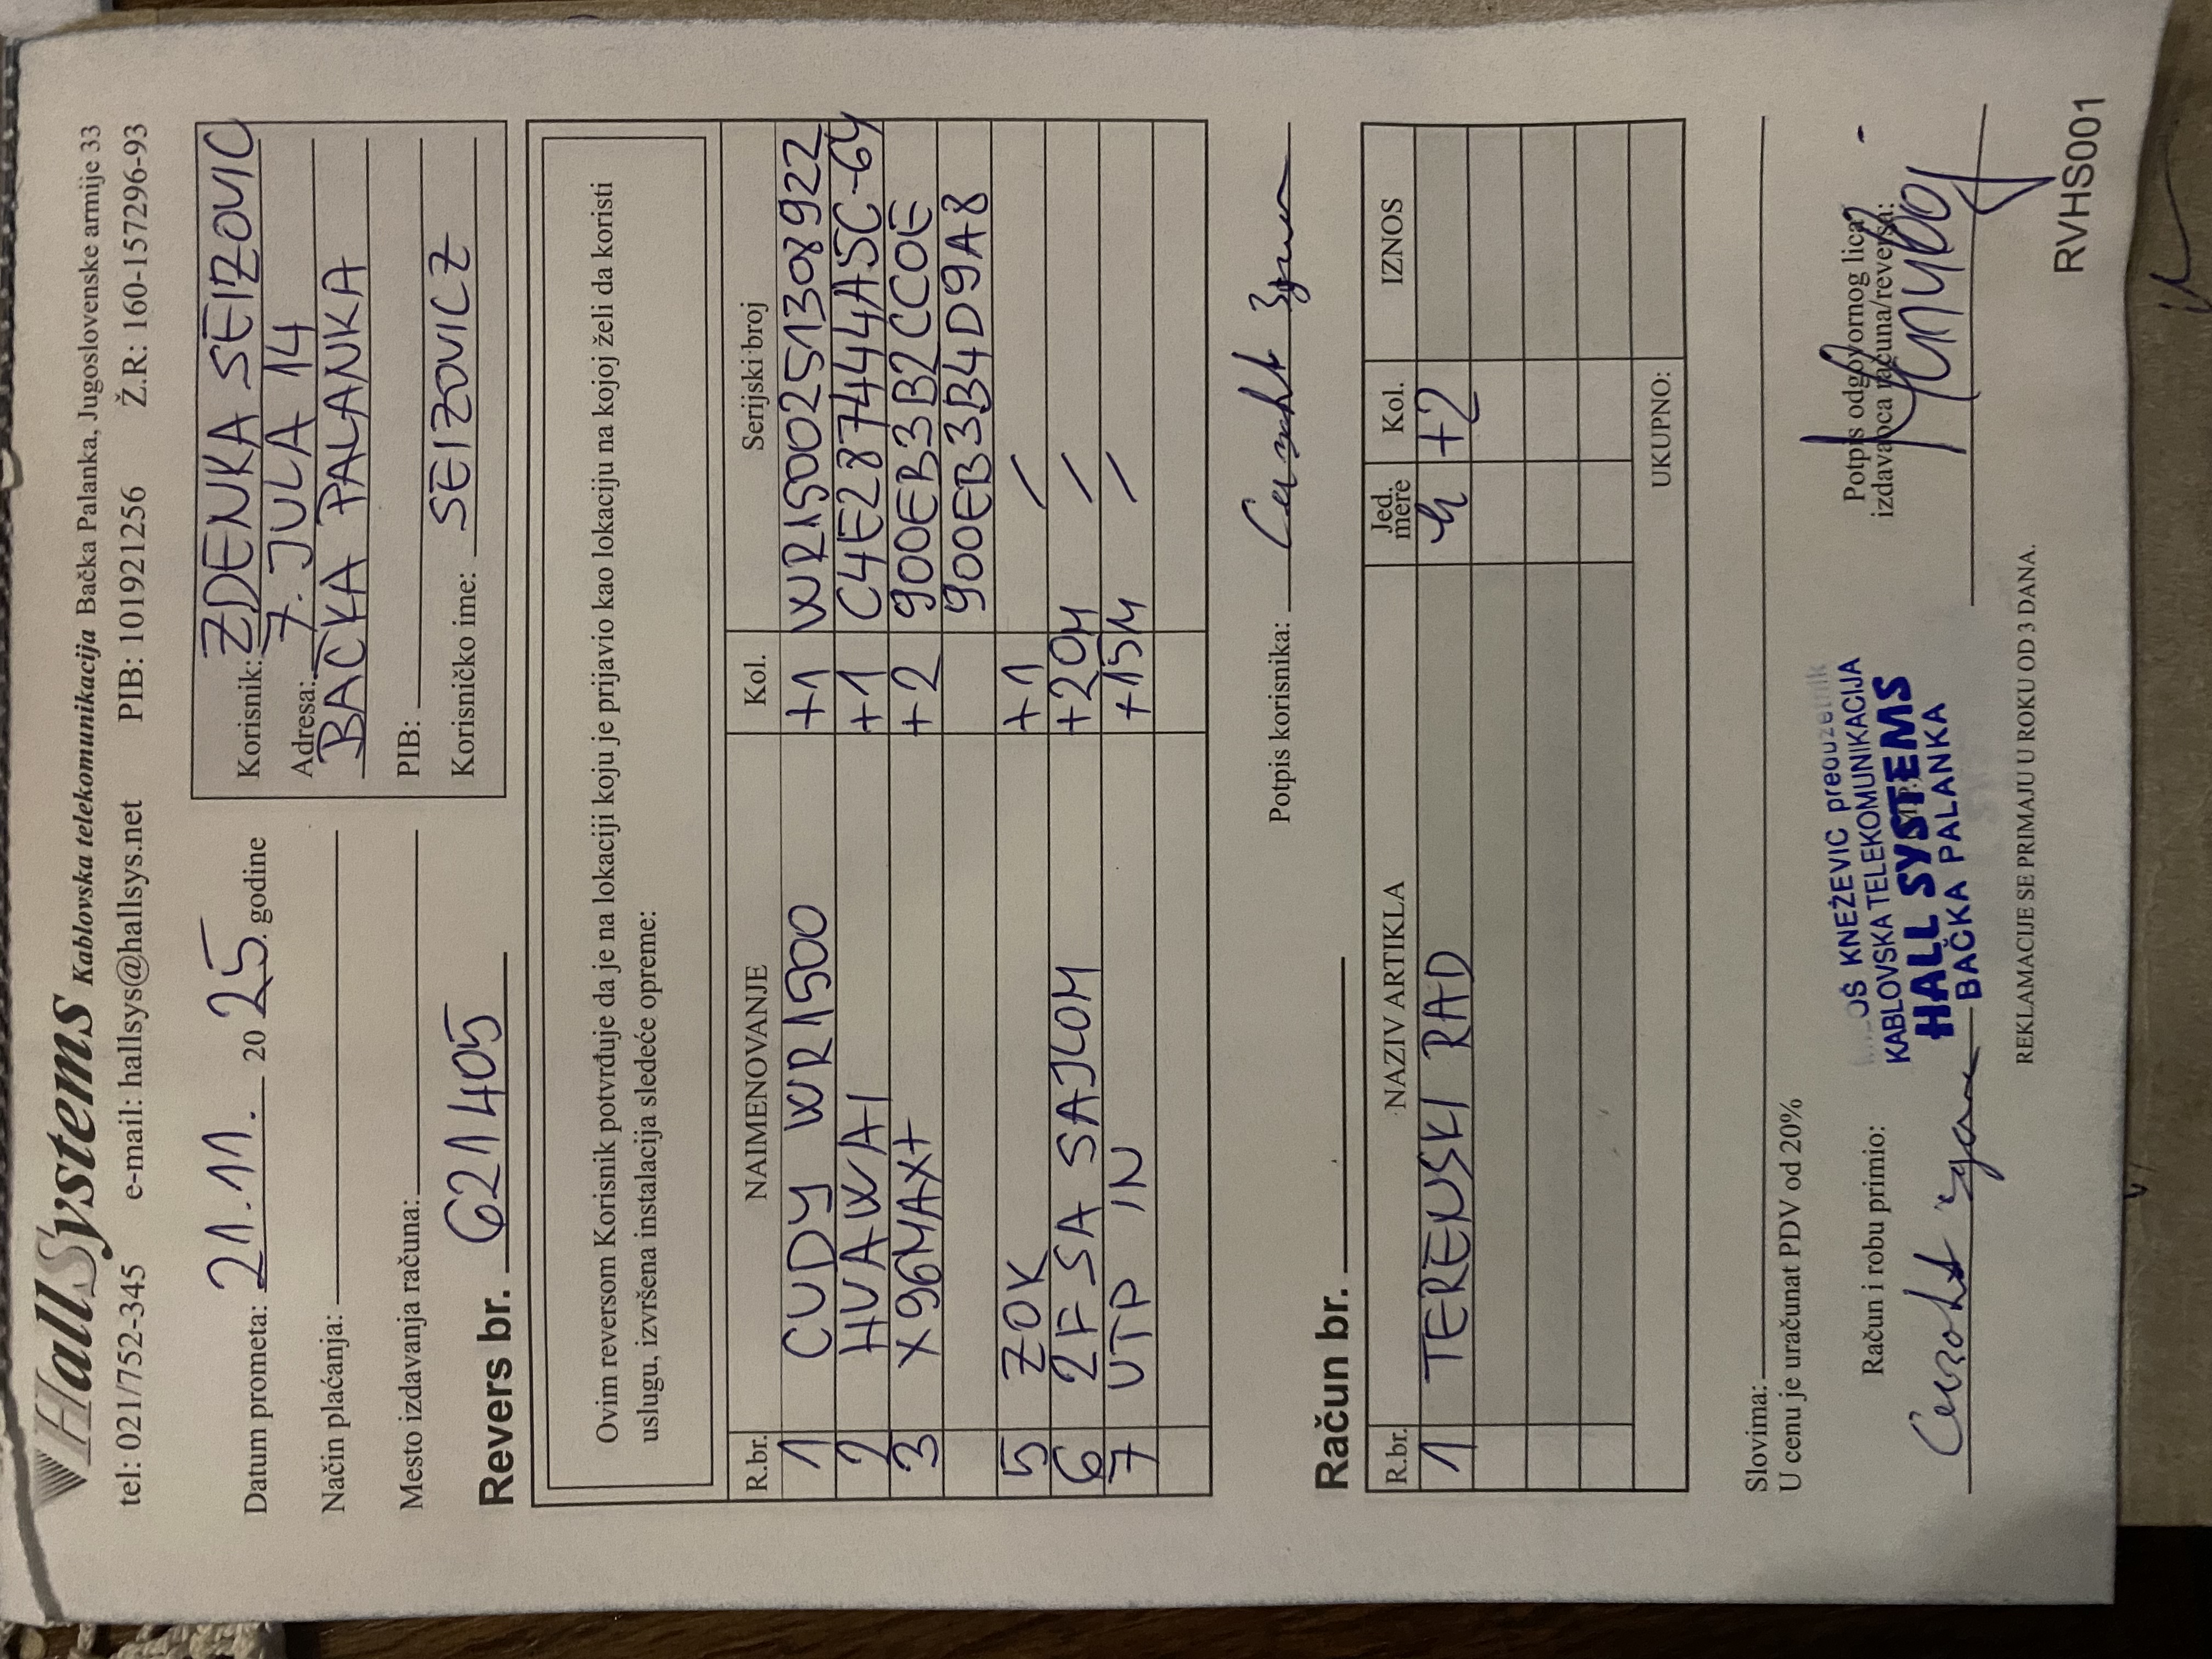 HallSystems Kablovska telekomunikacija Bačka Palanka, Jugoslovenske armije 33
tel: 021/752-345 e-mail: hallsys@hallsys.net PIB: 101921256 Ž.R: 160-157296-93
Datum prometa: 21.11. 2025. godine
Način plaćanja:
Mesto izdavanja računa:
Korisnik: ZDENKA SEIZOVIC
Adresa: 7. JULA 14
BAČKA PALANKA
PIB:
Korisničko ime: SEIZOVICZ
Revers br. 621405
Ovim reversom Korisnik potvrđuje da je na lokaciji koju je prijavio kao lokaciju na kojoj želi da koristi
uslugu, izvršena instalacija sledeće opreme:
R.br. NAIMENOVANJE Kol. Serijski broj
1 CUDY WR1500 +1 WR15002513308922
2 HUAWAI +1 C4E287444A5C-64
3 X96MAX+ +2 900EB3B2CC0E
900EB3B4D9A8
5 ZOK +1 /
6 2F SA SAJLOM +20M /
7 UTP IN +15M /
Potpis korisnika:
Račun br.
R.br. NAZIV ARTIKLA Jed. mere Kol. IZNOS
1 TERENSKI RAD h +2
UKUPNO:
Slovima:
U cenu je uračunat PDV od 20%
Račun i robu primio:
KNEŽEVIĆ preduzetnik
KABLOVSKA TELEKOMUNIKACIJA
HALL SYSTEMS
BAČKA PALANKA
Potpis odgovornog lica
izdavaoca računa/reversa:
REKLAMACIJE SE PRIMAJU U ROKU OD 3 DANA.
RVHS001